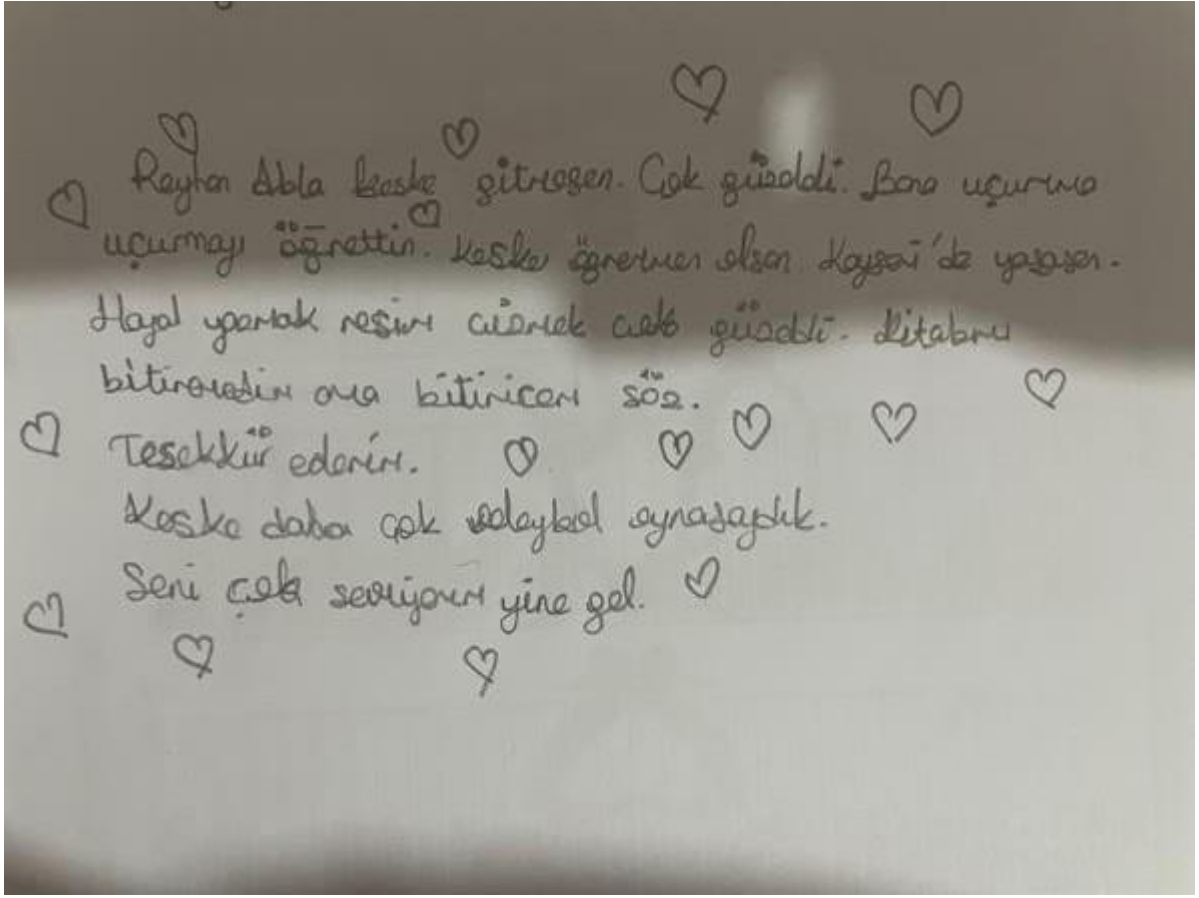 Reyhan Abla keske gitmesen. Çok güzeldi. Bana uçurtma
uçurmayı öğrettin. Keske öğretmen olsan Kayseri'de yaşasan.
Hayal yapmak resim cizmek cok güzeldi. Kitabımı
bitiremedim ama bitiricem söz.
Tesekkür ederim.
Keske daha çok voleybol oynasaydık.
Seni çok seviyorum yine gel.